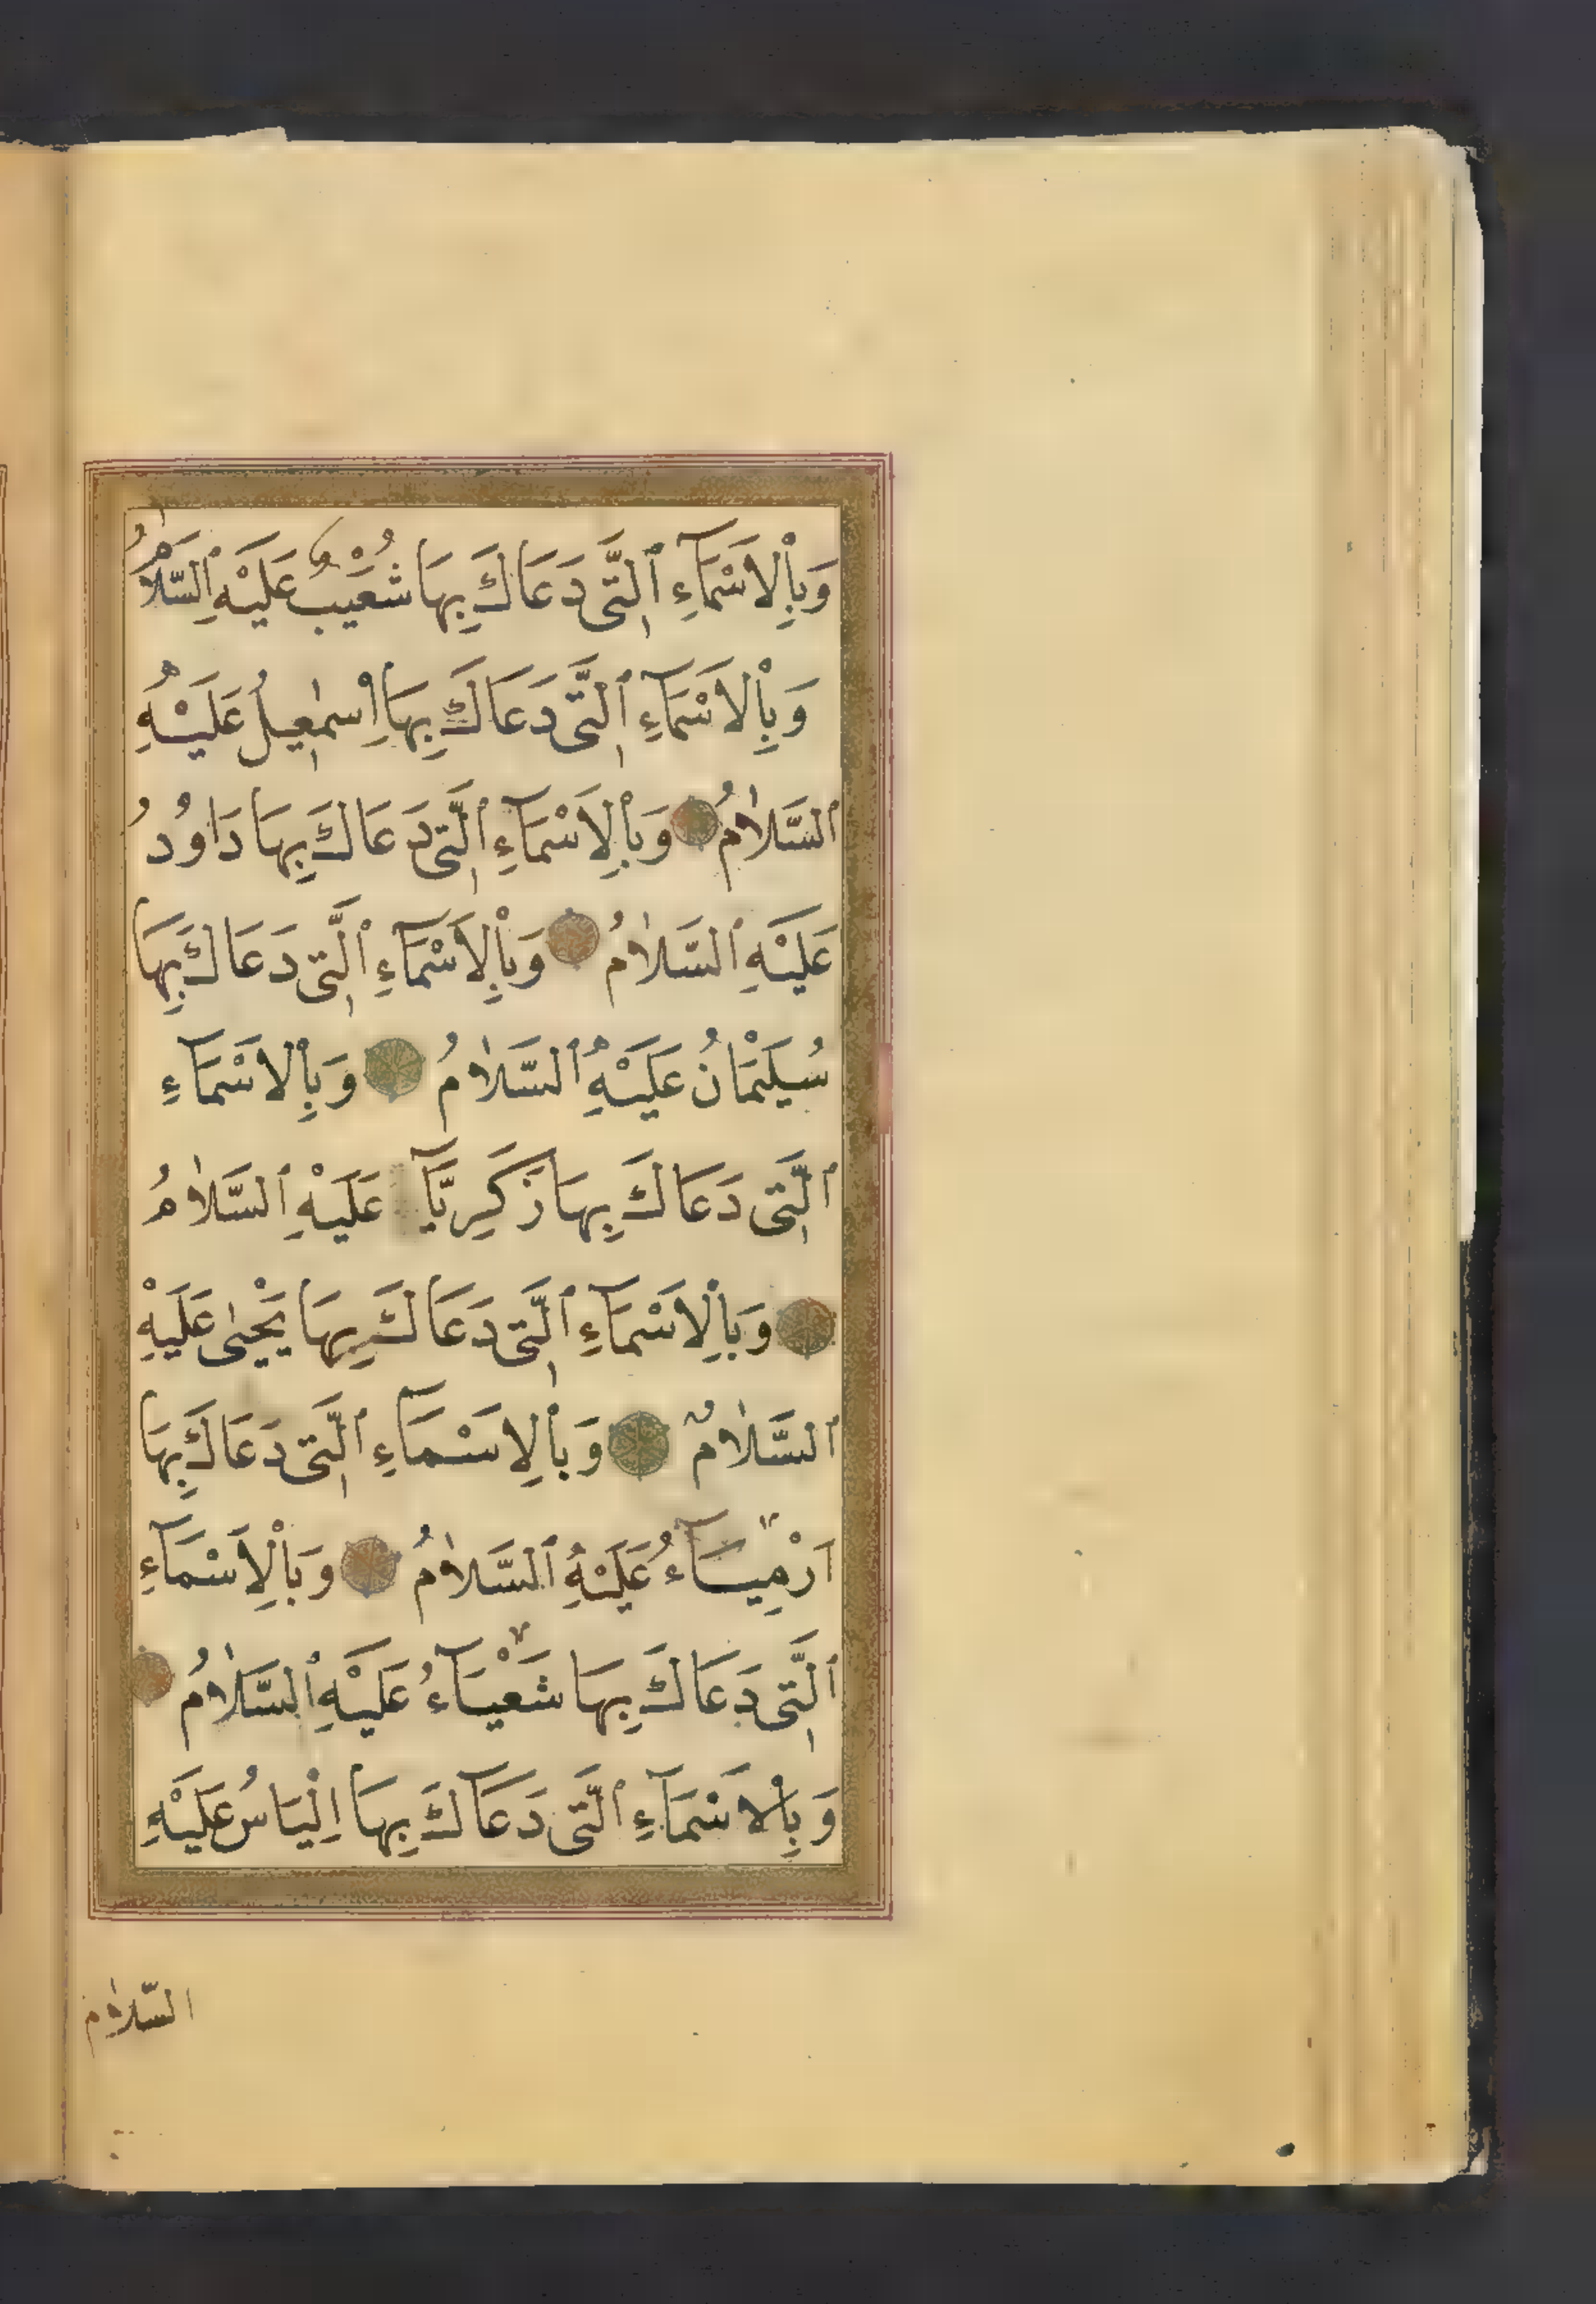 وَبِالْاَسْمَآءِ الَّتِى دَعَاكَ بِهَا شُعَيْبٌ عَلَيْهِ السَّلَامُ
وَبِالْاَسْمَآءِ الَّتِى دَعَاكَ بِهَا اِسْمٰعِيلُ عَلَيْهِ
السَّلَامُ وَبِالْاَسْمَآءِ الَّتِى دَعَاكَ بِهَا دَاوُدُ
عَلَيْهِ السَّلَامُ وَبِالْاَسْمَآءِ الَّتِى دَعَاكَ بِهَا
سُلَيْمَانُ عَلَيْهِ السَّلَامُ وَبِالْاَسْمَآءِ
الَّتِى دَعَاكَ بِهَا زَكَرِيَّآ عَلَيْهِ السَّلَامُ
وَبِالْاَسْمَآءِ الَّتِى دَعَاكَ بِهَا يَحْيٰى عَلَيْهِ
السَّلَامُ وَبِالْاَسْمَآءِ الَّتِى دَعَاكَ بِهَا
اَرْمِيَآءُ عَلَيْهِ السَّلَامُ وَبِالْاَسْمَآءِ
الَّتِى دَعَاكَ بِهَا شَعْيَآءُ عَلَيْهِ السَّلَامُ
وَبِالْاَسْمَآءِ الَّتِى دَعَاكَ بِهَا اِلْيَاسُ عَلَيْهِ
السّلام